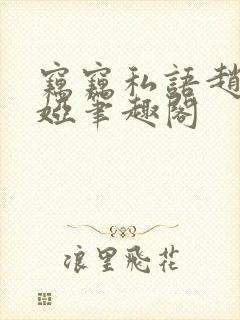 竊竊私語趙
婭筆趣閣
浪里飛花